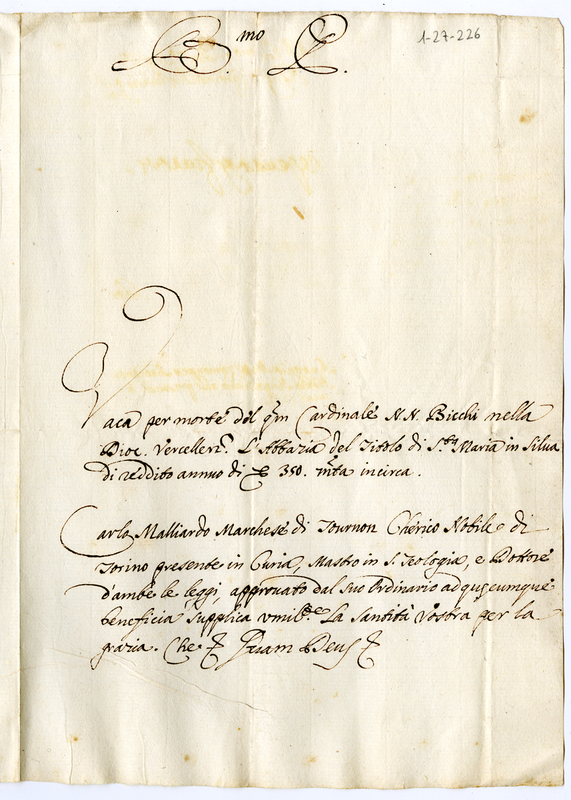 1-27-226
B.mo P.
Vaca per morte del qm Cardinale NN. Bicchi nella
Dioc. Vercellen. L'Abbazia del Titolo di S.ta Maria in Silva
di reddito annuo di 350. mta incirca.
Carlo Malliardo Marchese di Tournon Cherico Nobile di
Torino presente in Curia, Mastro in S. Teologia, e Dottore
d'ambe le leggi, approvato dal suo Ordinario ad quęcumque
beneficia supplica vmil.de La Santità Vostra per la
grazia. Che Quam Deus